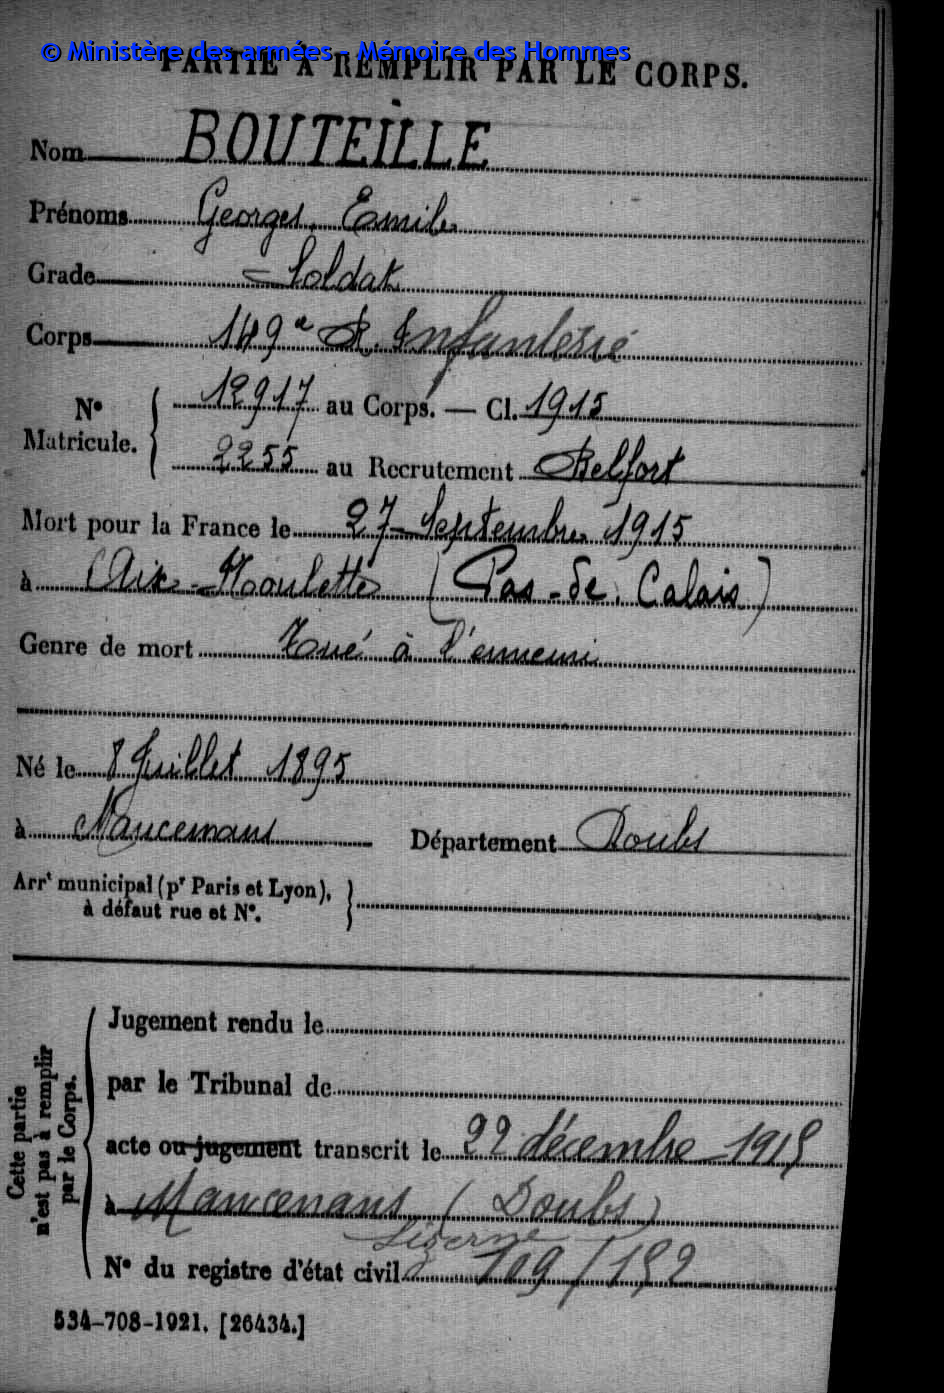 © Ministère des armées - Mémoire des Hommes
PARTIE À REMPLIR PAR LE CORPS.
Nom BOUTEILLE
Prénoms Georges. Emile
Grade Soldat
Corps 149e R. Infanterie
N° Matricule. { 12917 au Corps. — Cl. 1915
2255 au Recrutement Belfort
Mort pour la France le 27 Septembre 1915
à Aix-Noulette (Pas-de-Calais)
Genre de mort Tué à l'ennemi
Né le 8 Juillet 1895
à Mancenans Département Doubs
Arrt municipal (pr Paris et Lyon), }
à défaut rue et N°.
Cette partie
n'est pas à remplir
par le Corps.
Jugement rendu le
par le Tribunal de
acte ou jugement transcrit le 22 décembre 1915
à Mancenans (Doubs)
Lizerne
N° du registre d'état civil 109/152
534-708-1921. [26434.]